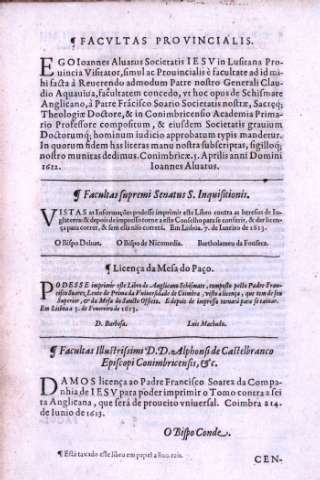 ¶ FACVLTAS PROVINCIALIS.
EGO Ioannes Aluarus Societatis IESV in Lusitana Pro
uincia Visitator, simul ac Prouincialis è facultate ad id mi
hi facta à Reuerendo admodum Patre nostro Generali Claudio
Aquauiua, facultatem concedo, vt hoc opus de Schismate
Anglicano, à Patre Frācisco Soario Societatis nostræ, Sacręq;
Theologiæ Doctore, & in Conimbricensi Academia Prima-
rio Professore compositum, & eiusdem Societatis grauium
Doctorumq; hominum iudicio approbatum typis mandetur.
In quorum fidem has literas manu nostra subscriptas, sigilloq;
nostro munitas dedimus. Conimbricæ 5. Aprilis anni Domini
1612. Ioannes Aluarus.
¶ Facultas supremi Senatus S. Inquisitionis.
VISTAS as informações podesse imprimir este Liuro contra as heresias de In-
glaterra & depois de impresso torne a este Conselho para se conferir, & dar licen-
ça para correr, & sem ella não correrà. Em Lisboa. 7. de Ianeiro de 1613.
O Bispo Deluas. O Bispo de Nicomedia. Bartholameu da Fonseca.
¶ Licença da Mesa do Paço.
PODESSE imprimir este Liuro de Anglicano Schismate, composto pello Padre Fran-
cisco Suarez, Lente de Prima da Vniuersidade de Coimbra, vista a licença, que tem do seu
Superior, & da Mesa do Sancto Officio. E depois de impresso tornarà para se taixar.
Em Lisboa a 5. de Feuereiro de 1613.
D. Barbosa. Luis Machado.
¶ Facultas Illustrissimi D. D. Alphonsi de Castelbranco
Episcopi Conimbricensis, &c.
DAMOS licença ao Padre Francisco Soarez da Compa-
nhia de IESV para poder imprimir o Tomo contra a sei
ta Anglicana, que será de proueito vniuersal. Coimbra a 24.
de Iunio de 1613.
O Bispo Conde.
¶ Está taxado este liuro em papel a 800 reis.
CEN-